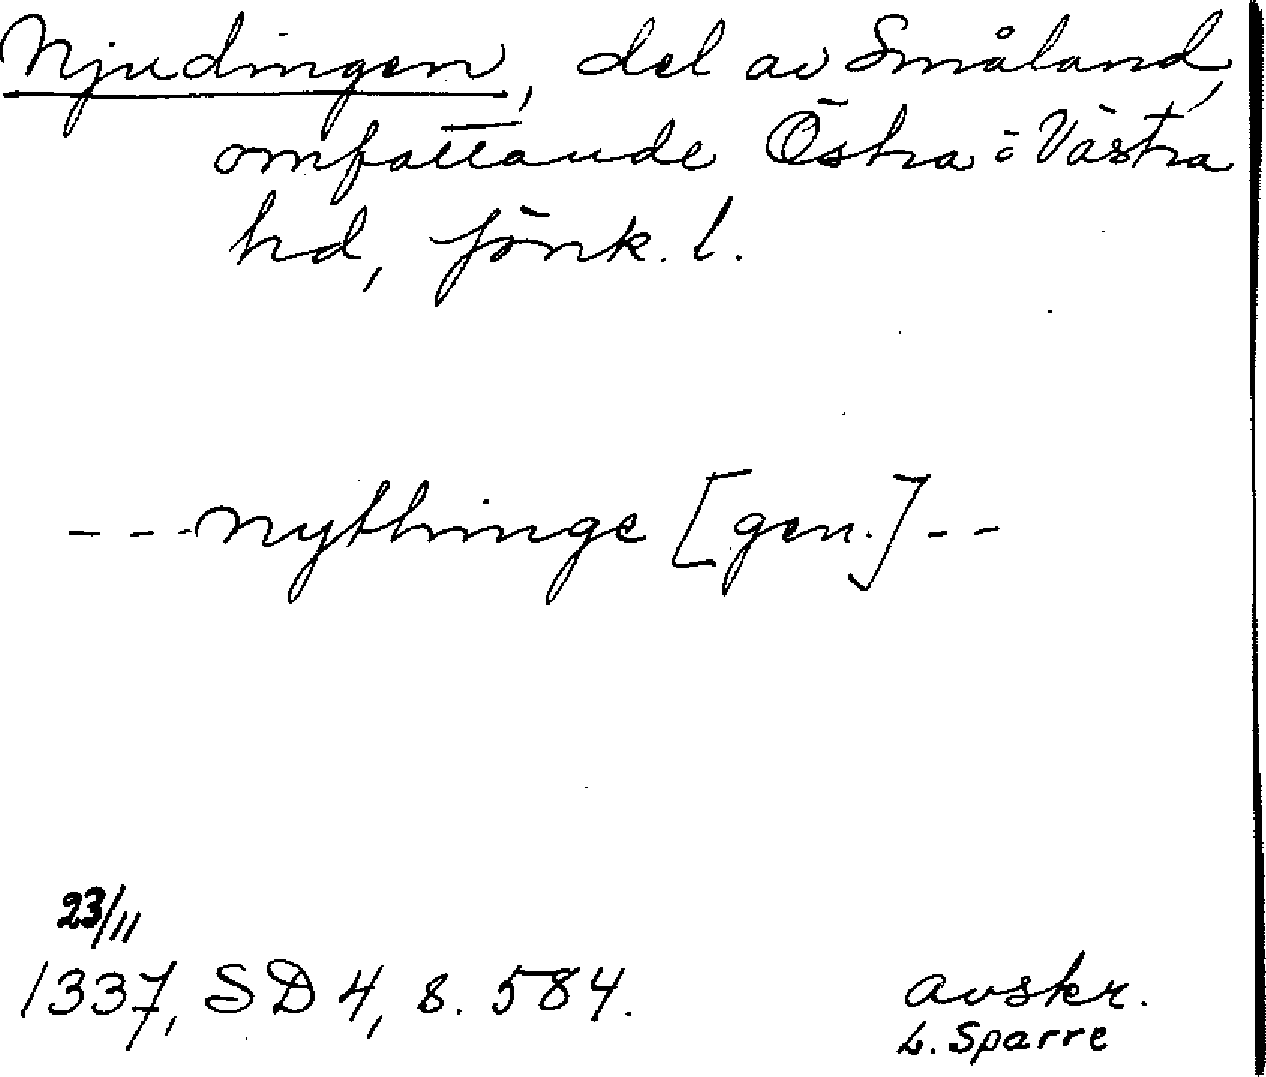 Njudingen, del av Småland,
omfattande Östra o Västra
hd, Jönk. l.
- - - nythinge [gen.] - -
23/11
1337, SD 4, s. 584.
avskr.
L. Sparre